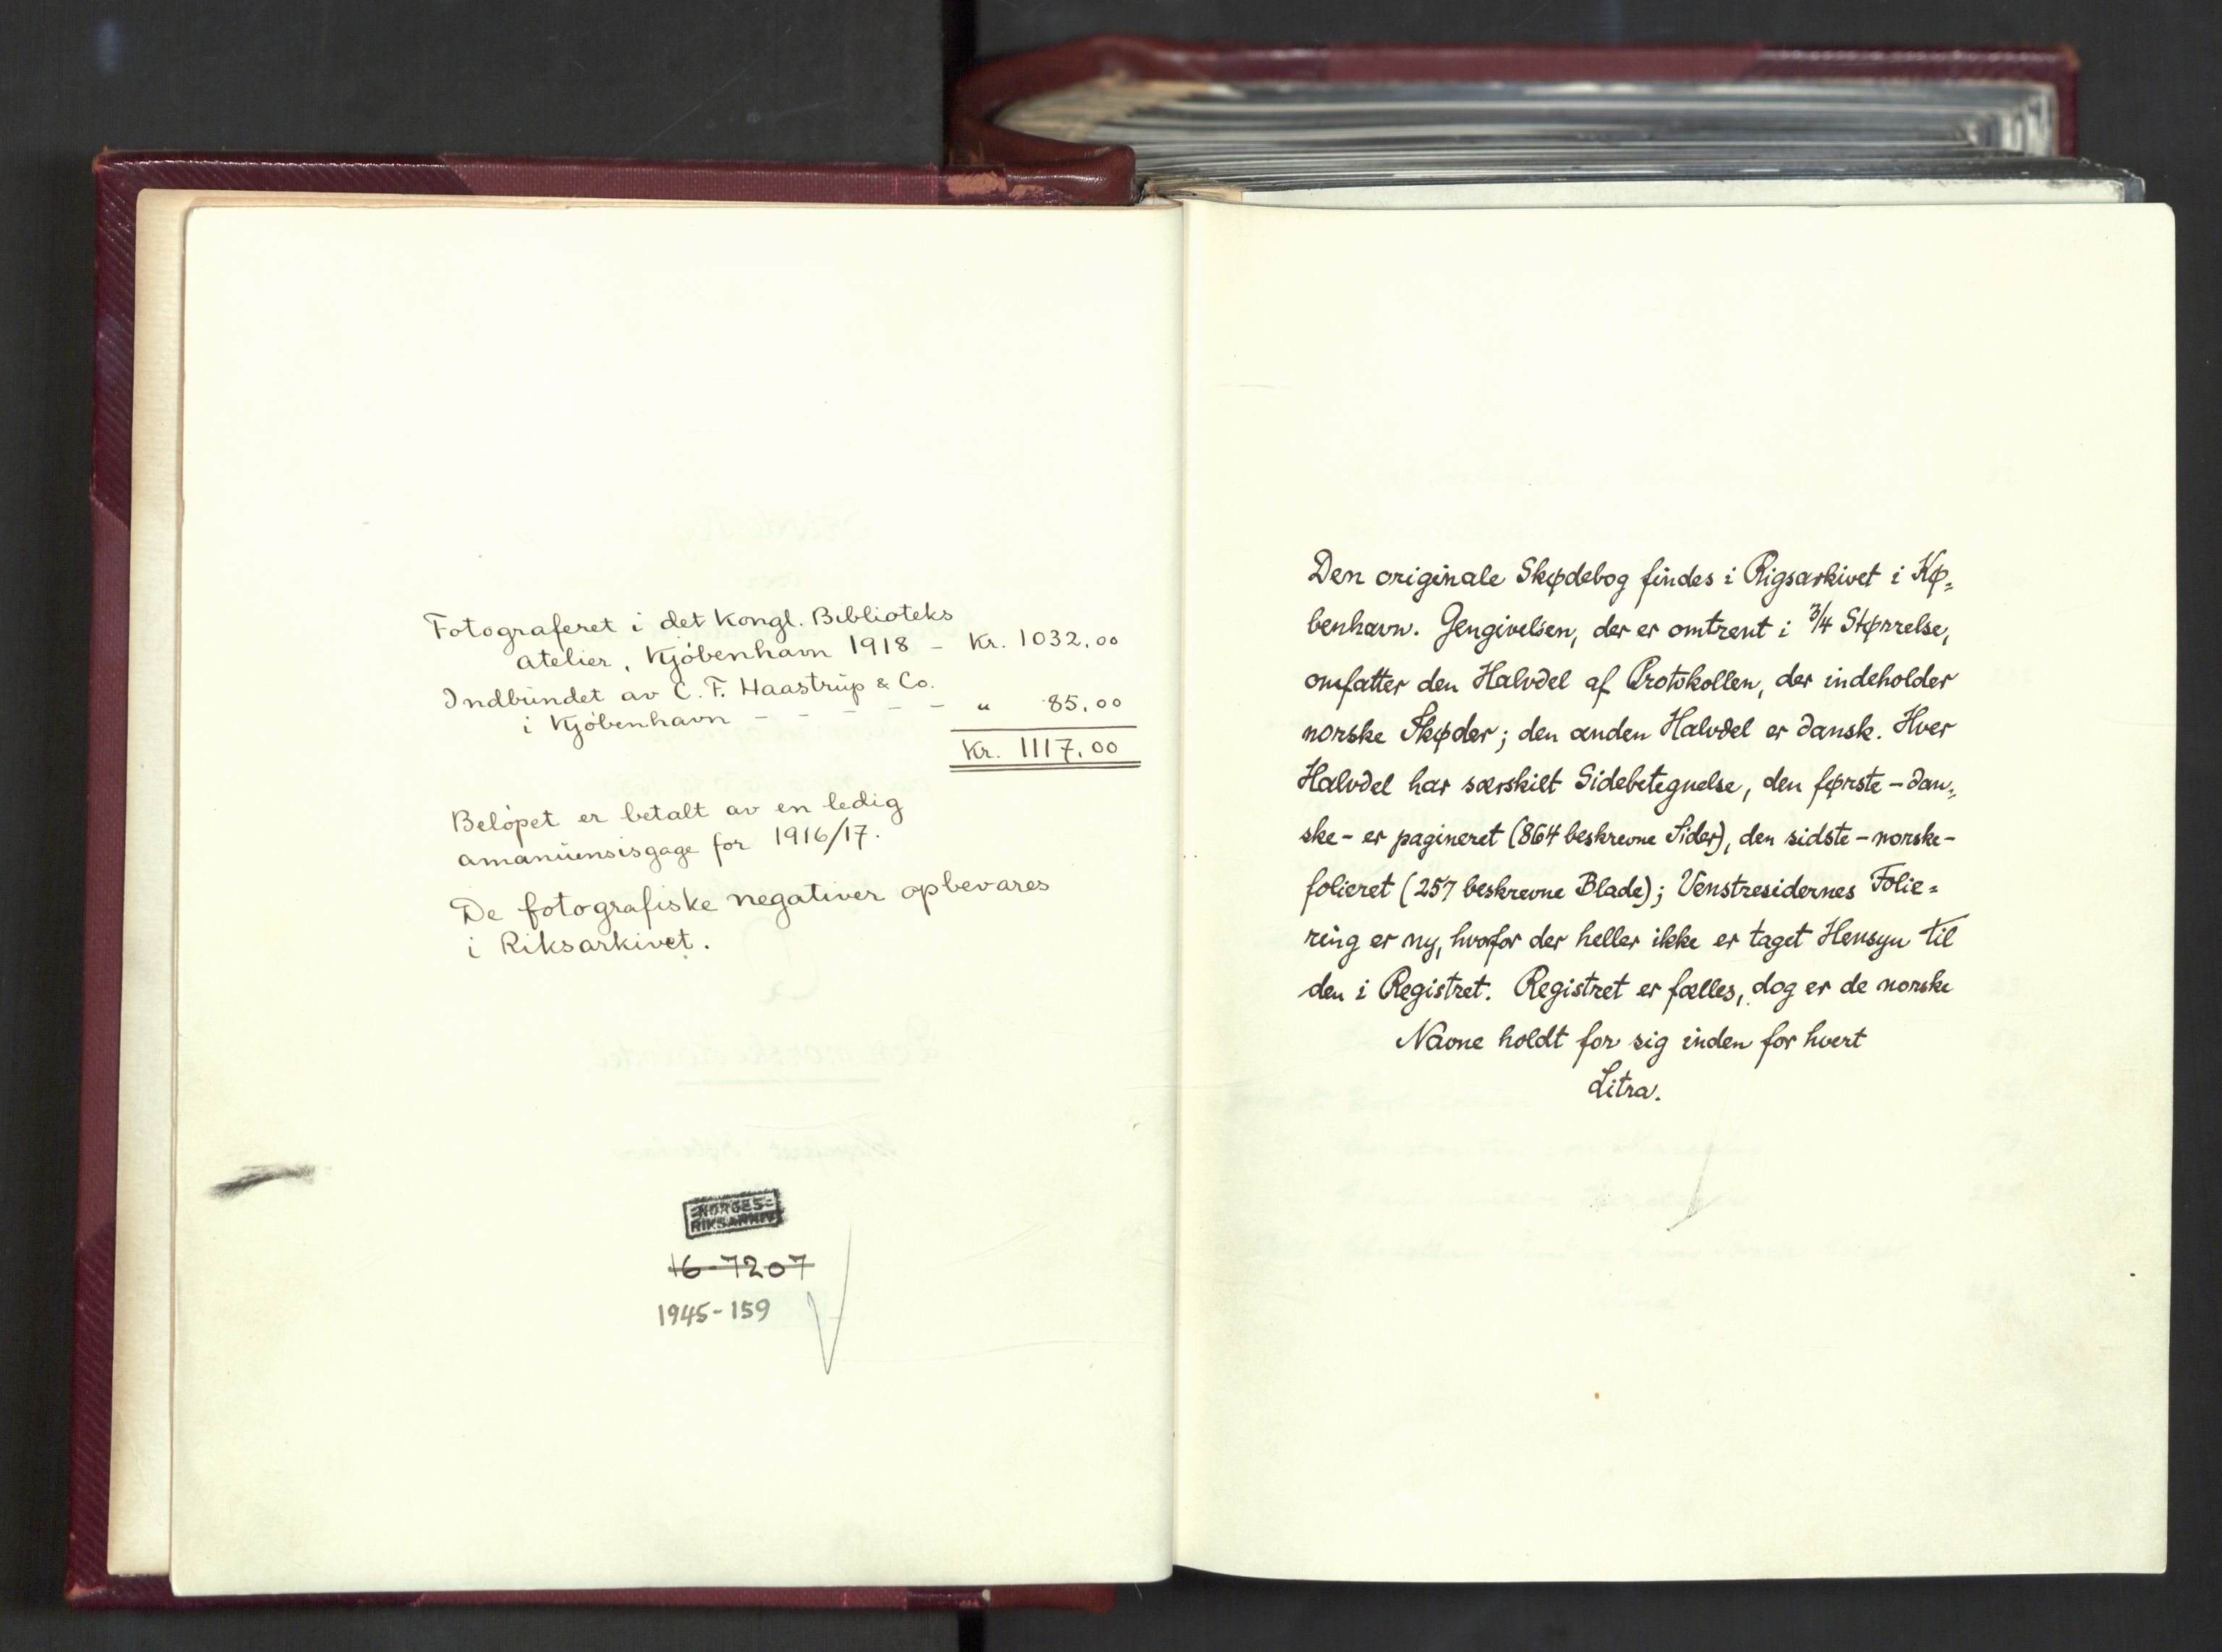 Fotograferet i det Kongl. Biblioteks
atelier, Kjöbenhavn 1918 – Kr. 1032.00
Indbundet av C. F. Haastrup & Co.
i Kjöbenhavn – – – – – " 85.00
Kr. 1117.00
Belöpet er betalt av en ledig
amanuensisgage for 1916/17.
De fotografiske negativer opbevares
i Riksarkivet.
NORGES
RIKSARKIV
16-7207
1945-159
Den originale Skødebog findes i Rigsarkivet i Kø=
benhavn. Gengivelsen, der er omtrent i 3/4 Størrelse,
omfatter den Halvdel af Protokollen, der indeholder
norske Skøder; den anden Halvdel er dansk. Hver
Halvdel har særskilt Sidebetegnelse, den første – dan=
ske – er pagineret (864 beskrevne Sider), den sidste – norske –
folieret (257 beskrevne Blade); Venstresidernes Folie=
ring er ny, hvorfor der heller ikke er taget Hensyn til
den i Registret. Registret er fælles, dog er de norske
Navne holdt for sig inden for hvert
Litra.